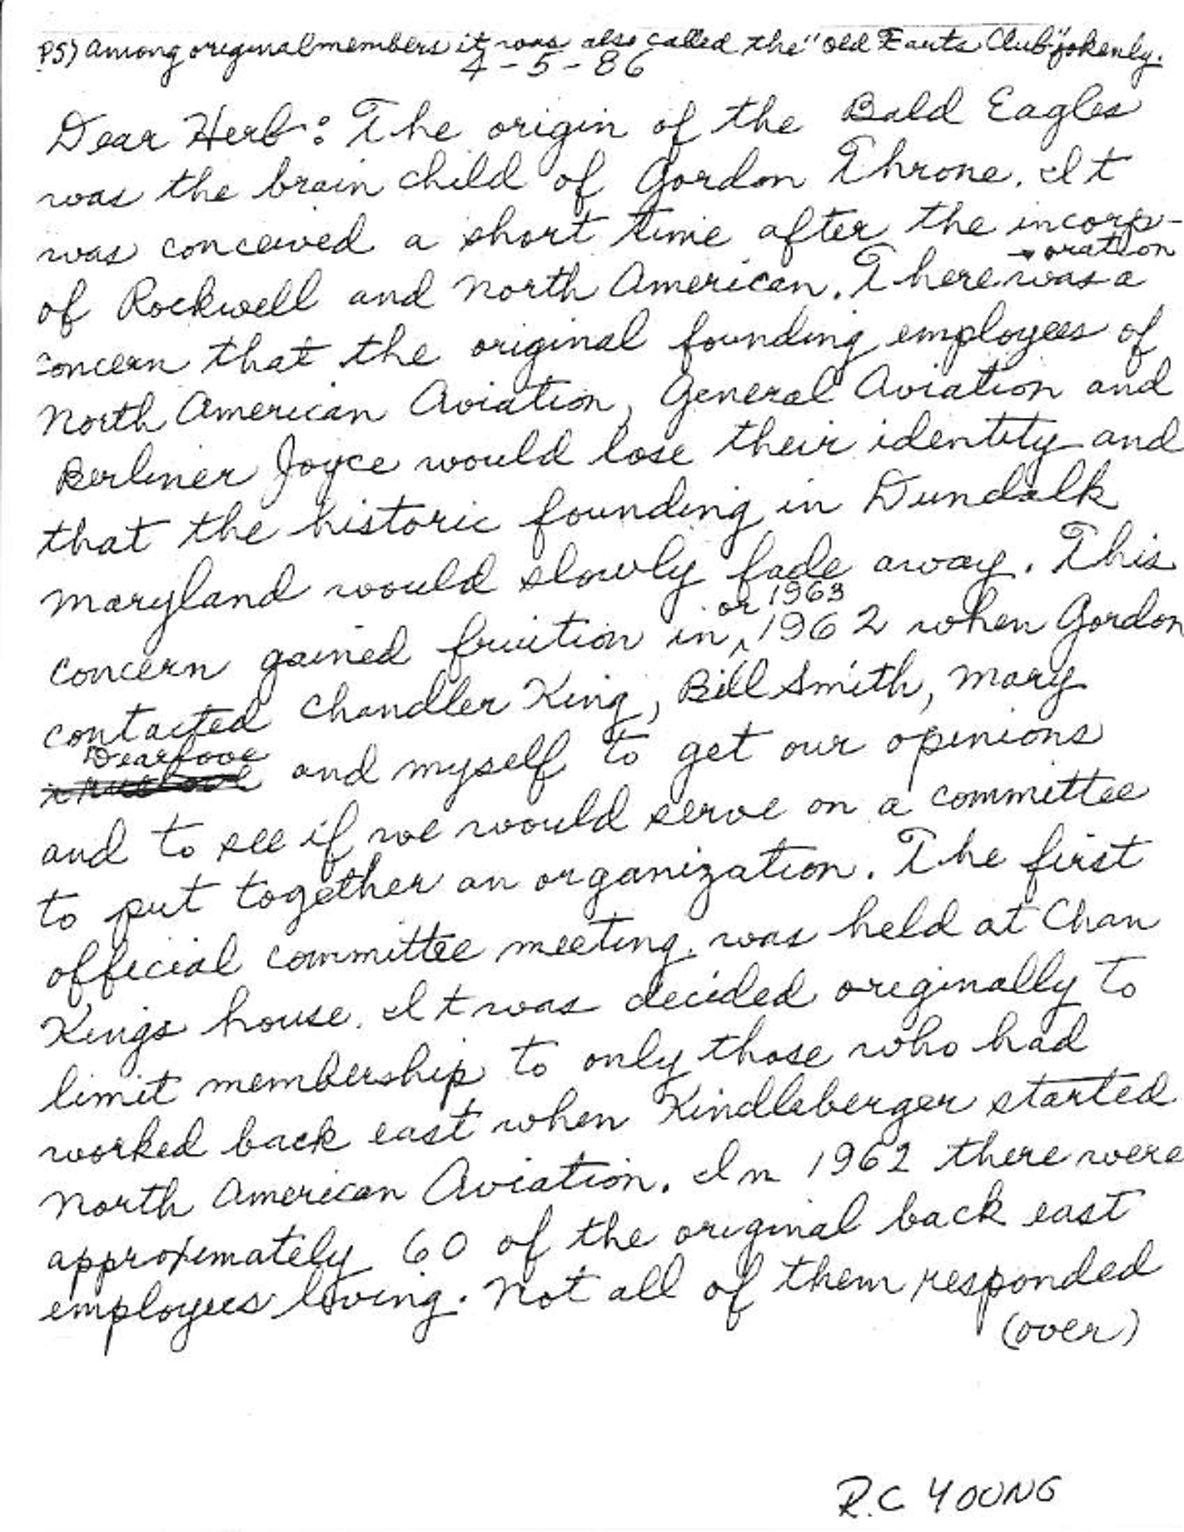 PS) Among original members it was also called the "Old Farts Club" jokenly.
4-5-86
Dear Herb: The origin of the Bald Eagles
was the brain child of Gordon Throne. It
was conceived a short time after the incorp-
oration
of Rockwell and North American. There was a
concern that the original founding employees of
North American Aviation, General Aviation and
Berliner Joyce would lose their identity and
that the historic founding in Dundalk
Maryland would slowly fade away. This
or 1963
concern gained fruition in 1962 when Gordon
contacted Chandler King, Bill Smith, Mary
Dearlove
and myself to get our opinions
and to see if we would serve on a committee
to put together an organization. The first
official committee meeting was held at Chan
Kings house. It was decided originally to
limit membership to only those who had
worked back east when Kindleberger started
North American Aviation. In 1962 there were
approximately 60 of the original back east
employees living. Not all of them responded
(over)
R.C YOUNG